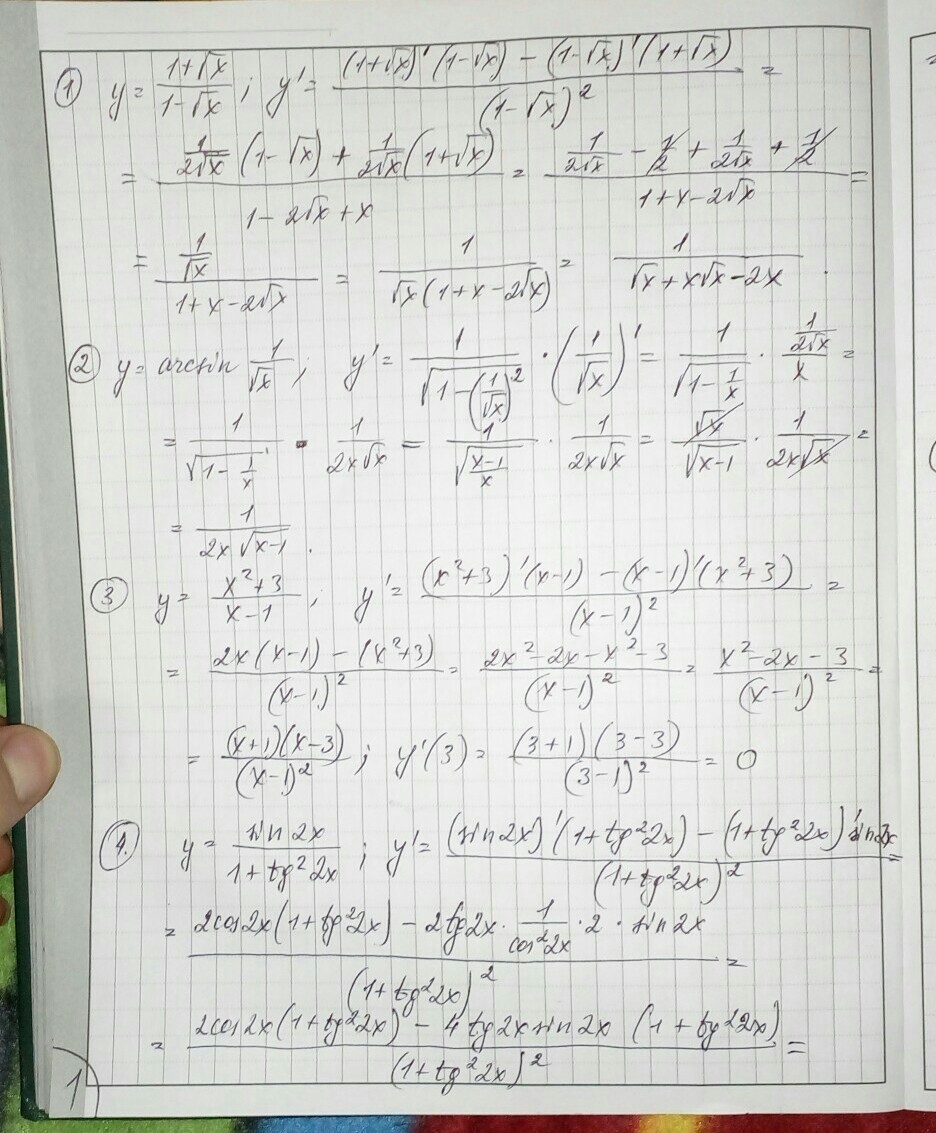 ① y = (1+√x)/(1-√x); y' = ((1+√x)'(1-√x) - (1-√x)'(1+√x))/(1-√x)² =
= (1/(2√x) (1-√x) + 1/(2√x) (1+√x))/(1-2√x+x) = (1/(2√x) - 1/2 + 1/(2√x) + 1/2)/(1+x-2√x) =
= (1/√x)/(1+x-2√x) = 1/(√x(1+x-2√x)) = 1/(√x+x√x-2x).
② y = arcsin 1/√x; y' = 1/√(1-(1/√x)²) · (1/√x)' = 1/√(1-1/x) · (1/(2√x))/x =
= 1/√(1-1/x) · 1/(2x√x) = 1/√((x-1)/x) · 1/(2x√x) = √x/√(x-1) · 1/(2x√x) =
= 1/(2x√(x-1)).
③ y = (x²+3)/(x-1); y' = ((x²+3)'(x-1) - (x-1)'(x²+3))/(x-1)² =
= (2x(x-1) - (x²+3))/(x-1)² = (2x²-2x-x²-3)/(x-1)² = (x²-2x-3)/(x-1)² =
= ((x+1)(x-3))/(x-1)²; y'(3) = ((3+1)(3-3))/(3-1)² = 0
④. y = sin2x/(1+tg²2x); y' = ((sin2x)'(1+tg²2x) - (1+tg²2x)'sin2x)/(1+tg²2x)² =
= (2cos2x(1+tg²2x) - 2tg2x · 1/cos²2x · 2 · sin2x)/(1+tg²2x)² =
= (2cos2x(1+tg²2x) - 4tg2x sin2x (1+tg²2x))/(1+tg²2x)² =
1